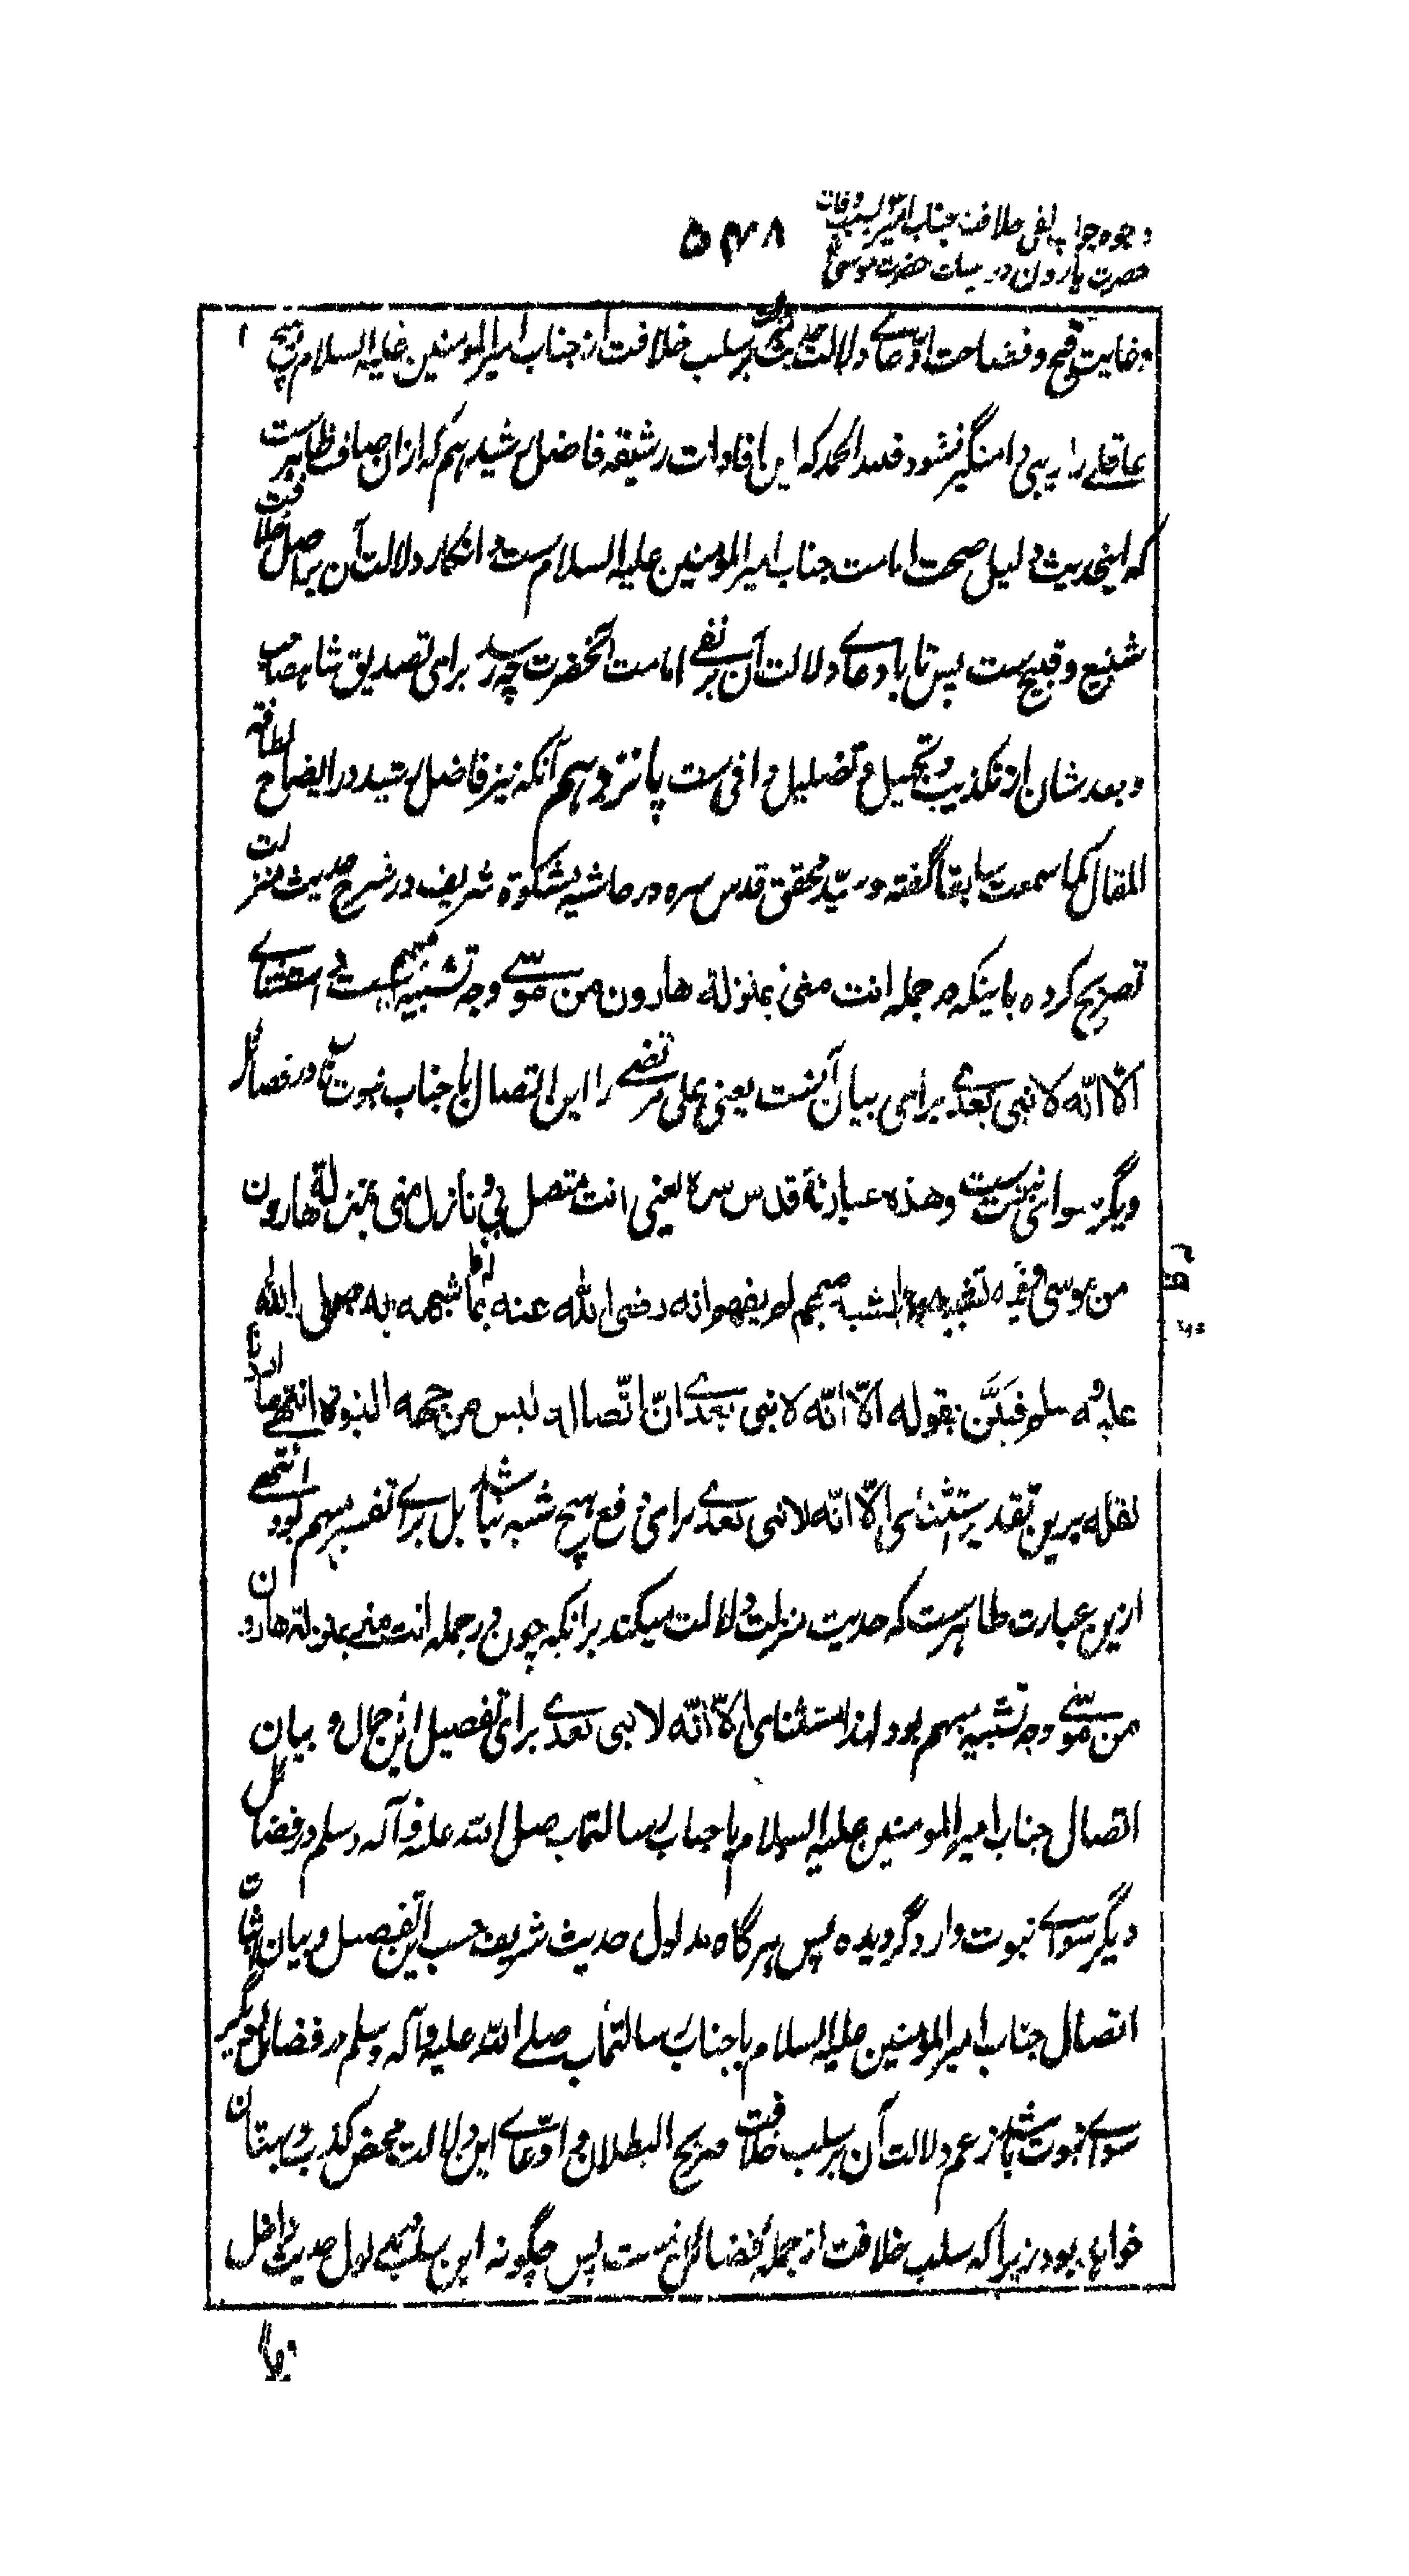 وجوه جواب نفی خلافت جناب امیر بسبب وفات
حضرت هارون در حیات حضرت موسی
۵۴۸
وغایت قبح و فضاحت ادّعاے دلالت حدیث بر سلب خلافت از جناب امیر المومنین علیه السلام هیچ
عاقلے را ریبی دامنگیر نشود فلله الحمد که این افادات رشیقه فاضل رشید هم که ازان صاف ظاهرست
که اینحدیث دلیل صحت امامت جناب امیر المومنین علیه السلام ست و انکار دلالت آن بر اصل خلافت
شنیع و قبیح ست پس تا بادعاے دلالت آن بر نفے امامت آنحضرت چه رسد برای تصدیق شاهصاحب
و بعد شان از تکذیب و تجهیل و تضلیل وافی ست پانزدهم آنکه نیز فاضل رشید در ایضاح لطافة
المقال کما سمعت سابقا گفته و سیّد محقق قدس سره در حاشیه مشکوة شریف در شرح حدیث منزلت
تصریح کرده باینکه در جمله انت منی بمنزلة هارون من موسّے وجه تشبیه مبهم است و استثناے
الّا انّه لا نبی بعدے برای بیان آنست یعنی علی مرتضے را این اتصال با جناب نبوت مآب در فضائل
دیگر سواے نبوت ست وهذه عبارته قدس سره یعنی انت متصل بی و نازل منی بمنزلة هارون
من موسی وفیه تشبیه ووجه الشبه مبهم لم یفهم انه رضی الله عنه بما شبهه به صلی الله
علیه وسلم فبیّن بقوله الّا انّه لا نبی بعدے انّ اتّصاله لیس من جهة النبوة انتهے ما اردنا
نقله پس برین تقدیر استثنای الّا انّه لا نبی بعدے برای دفع هیچ شبه نباشد بل براے تفسیر مبهم بود انتهے
ازین عبارت ظاهرست که حدیث منزلت دلالت میکند برانکه چون در جمله انت منے بمنزلة هارون
من موسّے وجه تشبیه مبهم بود لهذا استثنای الّا انّه لا نبی بعدے برای تفصیل این اجمال و بیان
اتصال جناب امیر المومنین علیه السلام با جناب رسالتمآب صلی الله علیه و آله وسلم در فضائل
دیگر سواے نبوت وارد گردیده پس هر گاه مدلول حدیث شریف حسب این تفصیل و بیان اثبات
اتصال جناب امیر المومنین علیه السلام با جناب رسالتمآب صلے الله علیه و آله وسلم در فضائل دیگر
سواے نبوت باشد زعم دلالت آن بر سلب خلافت صریح البطلان و ادّعاے این دلالت محض کذب و بهتان
خواهد بود زیرا که سلب خلافت از جمله فضائل نیست پس چگونه این سلب در مدلول حدیث داخل